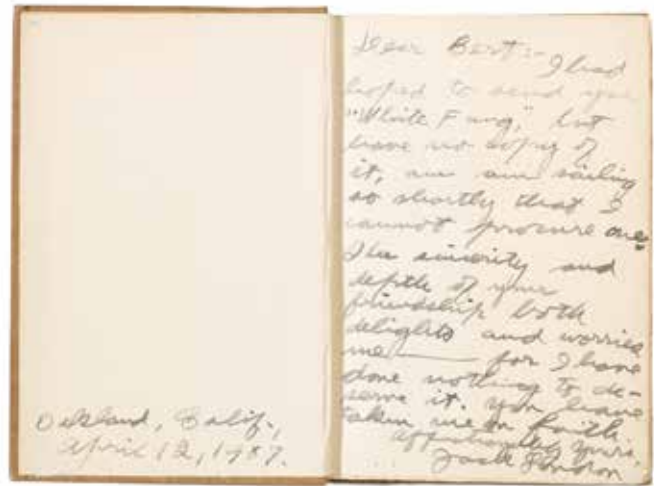 Oakland, Calif.,
April 12, 1907.
Dear Bert:- I had
hoped to send you
"White Fang," but
have no copy of
it, am am sailing
so shortly that I
cannot procure one.
The sincerity and
depth of your
friendship both
delights and worries
me — for I have
done nothing to de-
serve it. You have
taken me on faith.
Affectionately yours,
Jack London